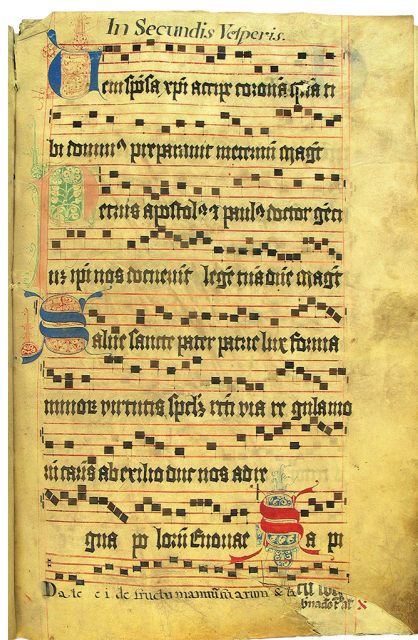 In Secundis Vesperis.
Veni sponsa xpi accipe coronā quā ti
bi dominꝰ preparavit in eternū magt̄
Petrus apostolꝰ et paulꝰ doctor gēti
uz ipi nos docuerūt legē tuā dn̄e magt̄
Salve sancte pater patrie lux forma
minorz virtutis via re gula mo
rū carnis ab exilio duc nos ad re
gna po Evovae Sa pi
Da te e i de fructu manuum